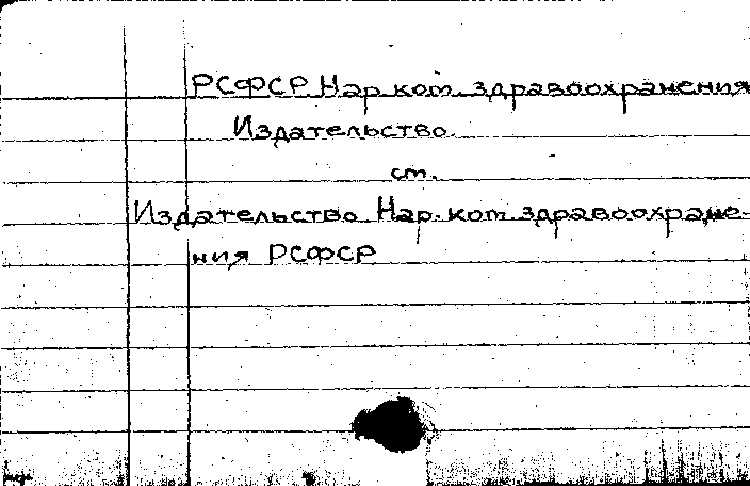 РСФСР Нар. ком. здравоохранения
Издательство.
см.
Издательство Нар. ком. здравоохране-
ния РСФСР